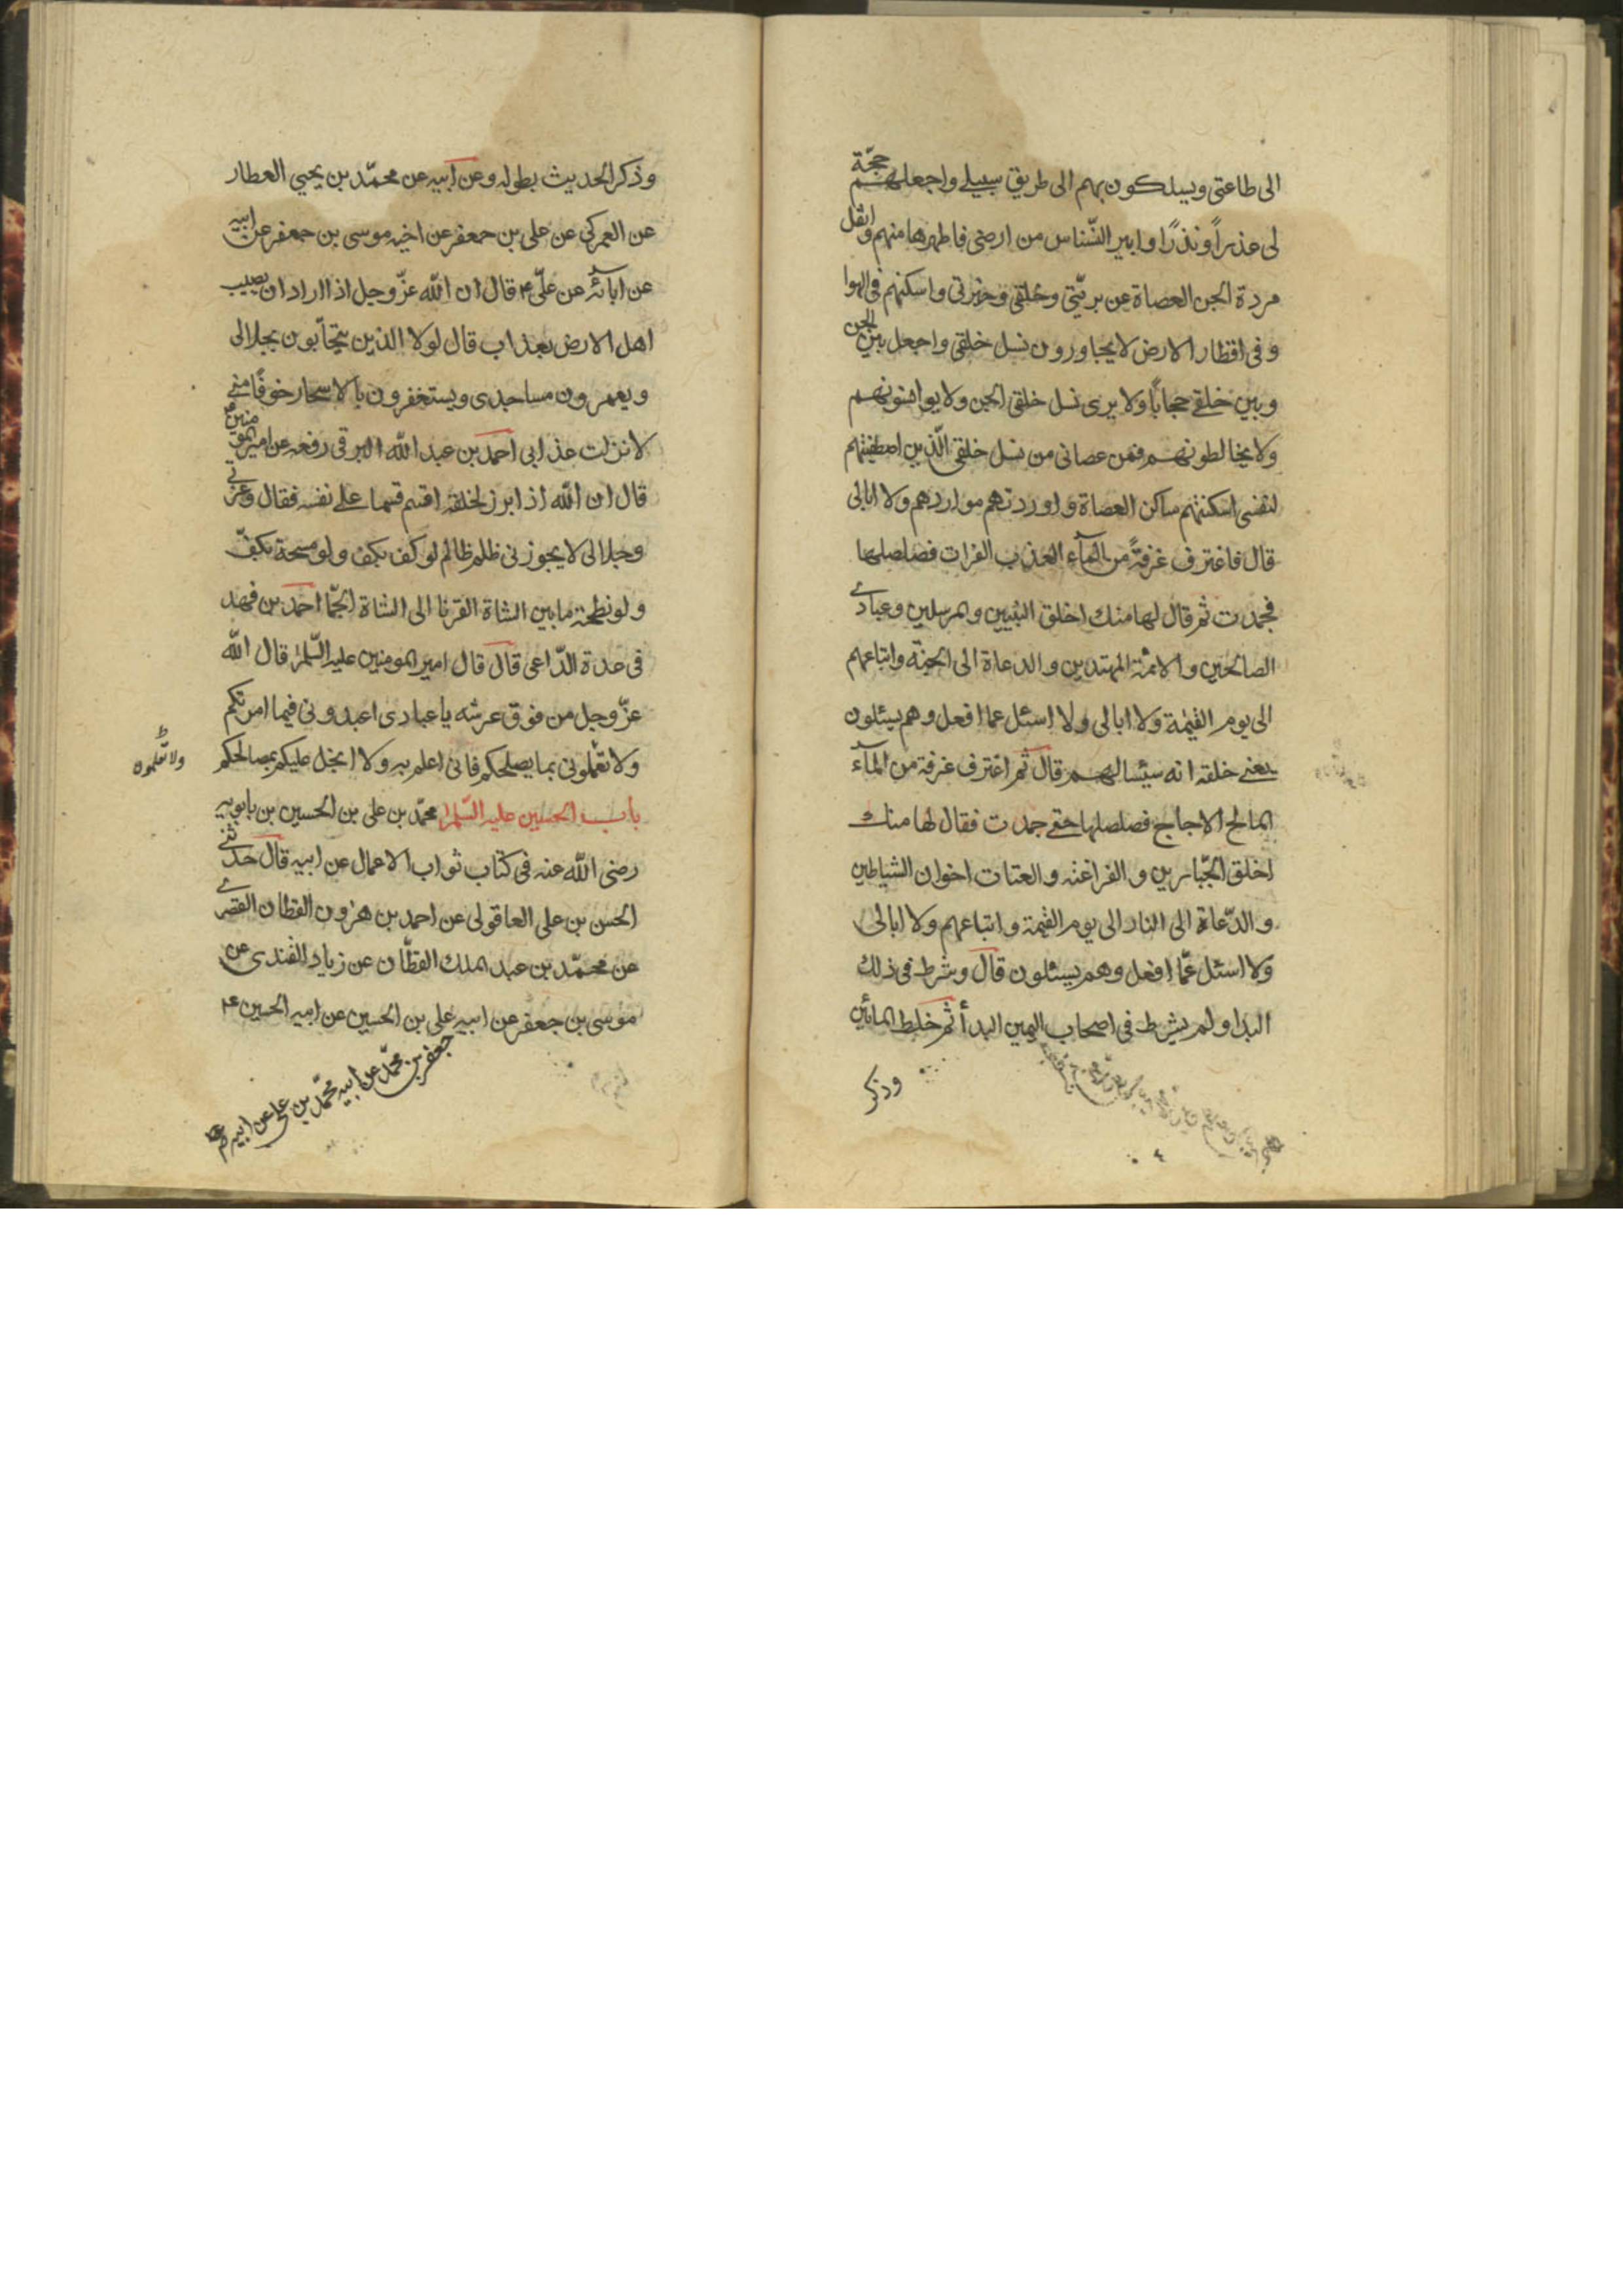 الى طاعتى ويسلكون بهم الى طريق سبيلے واجعلهم حجّة
لى عذراً ونذرًا وابير النّسناس من ارضى فاطهرها منهم وانقل
مردة الجن العصاة عن بريّتى وخلقى وخيرتى واسكنهم فى الهوا
وفى اقطار الارض لا يجاورون نسل خلقى واجعل بين الجن
وبين خلقے حجاباً ولا يرى نسل خلقى الجن ولا يوانسونهم
ولا يخالطونهم فمن عصانى من نسل خلقى الّذين اصطفيتهم
لنفسى اسكنتهم مساكن العصاة واوردتهم مواردهم ولا ابالى
قال فاغترف غرفةً من المآء العذب الفرات فصلصلها
فجمدت ثم قال لها منك اخلق النبيين والمرسلين وعبادے
الصالحين والائمة المهتدين والدعاة الى الجنّة واتباعهم
الى يوم القيٰمة ولا ابالى ولا اسئل عما افعل وهم يسئلون
يعنے خلقه انه سيئسالهم قال ثم اغترف غرفة من المآء
المالح الاجاج فصلصلها حتے جمدت فقال لها منك
اخلق الجّبارين والفراعنه والعتات اخوان الشياطين
والدّعاة الى النار الى يوم القيمة واتباعهم ولا ابالى
ولا اسئل عمّا افعل وهم يسئلون قال وشرط فى ذلك
البدا ولم يشرط فى اصحاب اليمين البدأ ثم خلط المائين
وذكر
وذكر الحديث بطوله وعن ابيه عن محمّد بن يحيي العطار
عن العمركى عن على بن جعفر عن اخيه موسى بن جعفر عن ابيه
عن ابآئه عن علّى ع قال ان اللّه عزّ وجل اذا اراد ان يصيب
اهل الارض بعذاب قال لولا الذين يتحآبون بجلالى
ويعمرون مساجدى ويستغفرون بالاسحار خوفًا منے
لانزلت عذابى احمد بن عبد اللّه البرقى رفعه عن امير المومنين ع
قال ان اللّه اذ ابرز لخلقه اقسم قسما علے نفسه فقال وعزتى
وجلالى لا يجوزنى ظلم ظالم لو كف بكف ولو مسحة بكفّ
ولو نطحة ما بين الشاة القرنا الى الشاة الجمّا احمد بن فهد
فى عدة الدّاعى قال قال امير المومنين عليه السّلم قال اللّه
عزّ وجل من فوق عرشه يا عبادى اعبدونى فيما امرتكم
ولا تعّلمونى بما يصلحكم فانى اعلم به ولا ابخل عليكم بمصالحكم
باب الحسين عليه السّلم محمّد بن على بن الحسين بن بابويه
رضى اللّه عنه فى كتاب ثواب الاعمال عن ابيه قال حدثنے
الحسن بن على العاقولى عن احمد بن هرون القطان القصرے
عن محمّد بن عبد الملك القطّان عن زياد القندى عن
موسى بن جعفر عن ابيه على بن الحسين عن ابيه الحسين ع
جعفر بن محمّد عن ابيه محمّد بن على عن ابيه